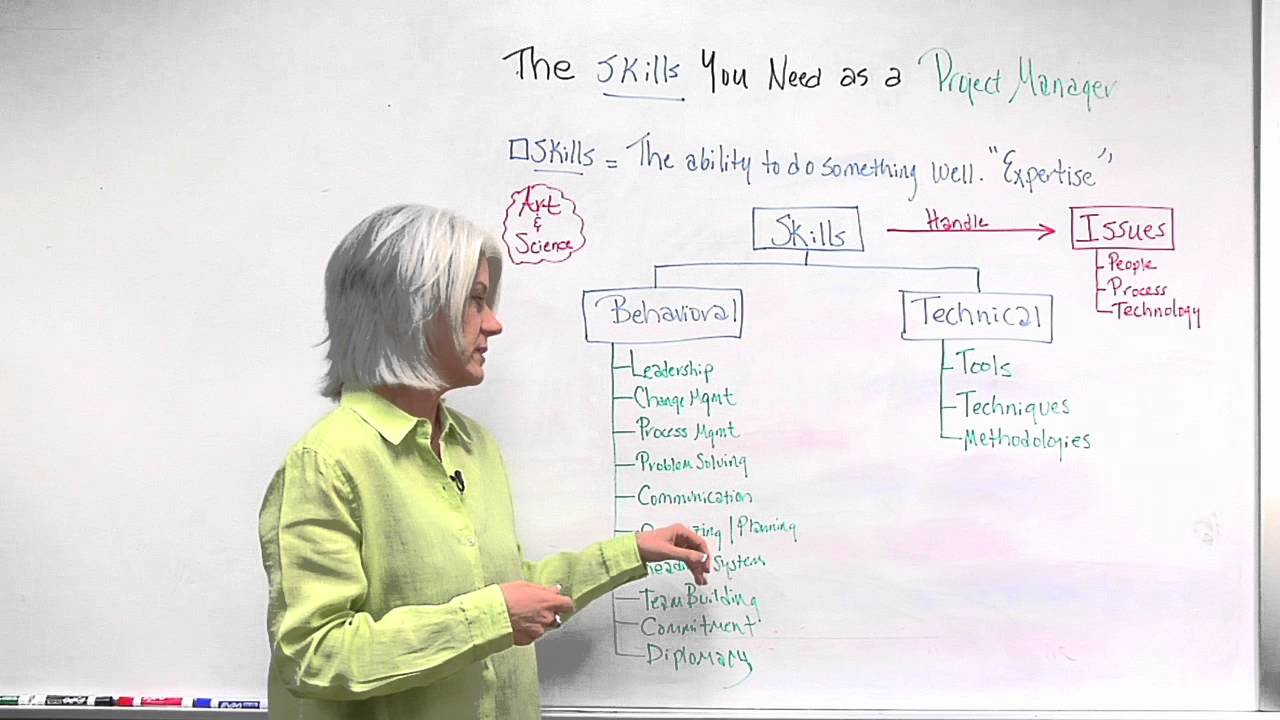 The Skills You Need as a Project Manager
Skills = The ability to do something well. "Expertise"
Art
&
Science
Skills
Handle
Issues
People
Process
Technology
Behavioral
Technical
Leadership
Change Mgmt
Process Mgmt
Problem Solving
Communication
| Planning
System
Team Building
Commitment
Diplomacy
Tools
Techniques
Methodologies